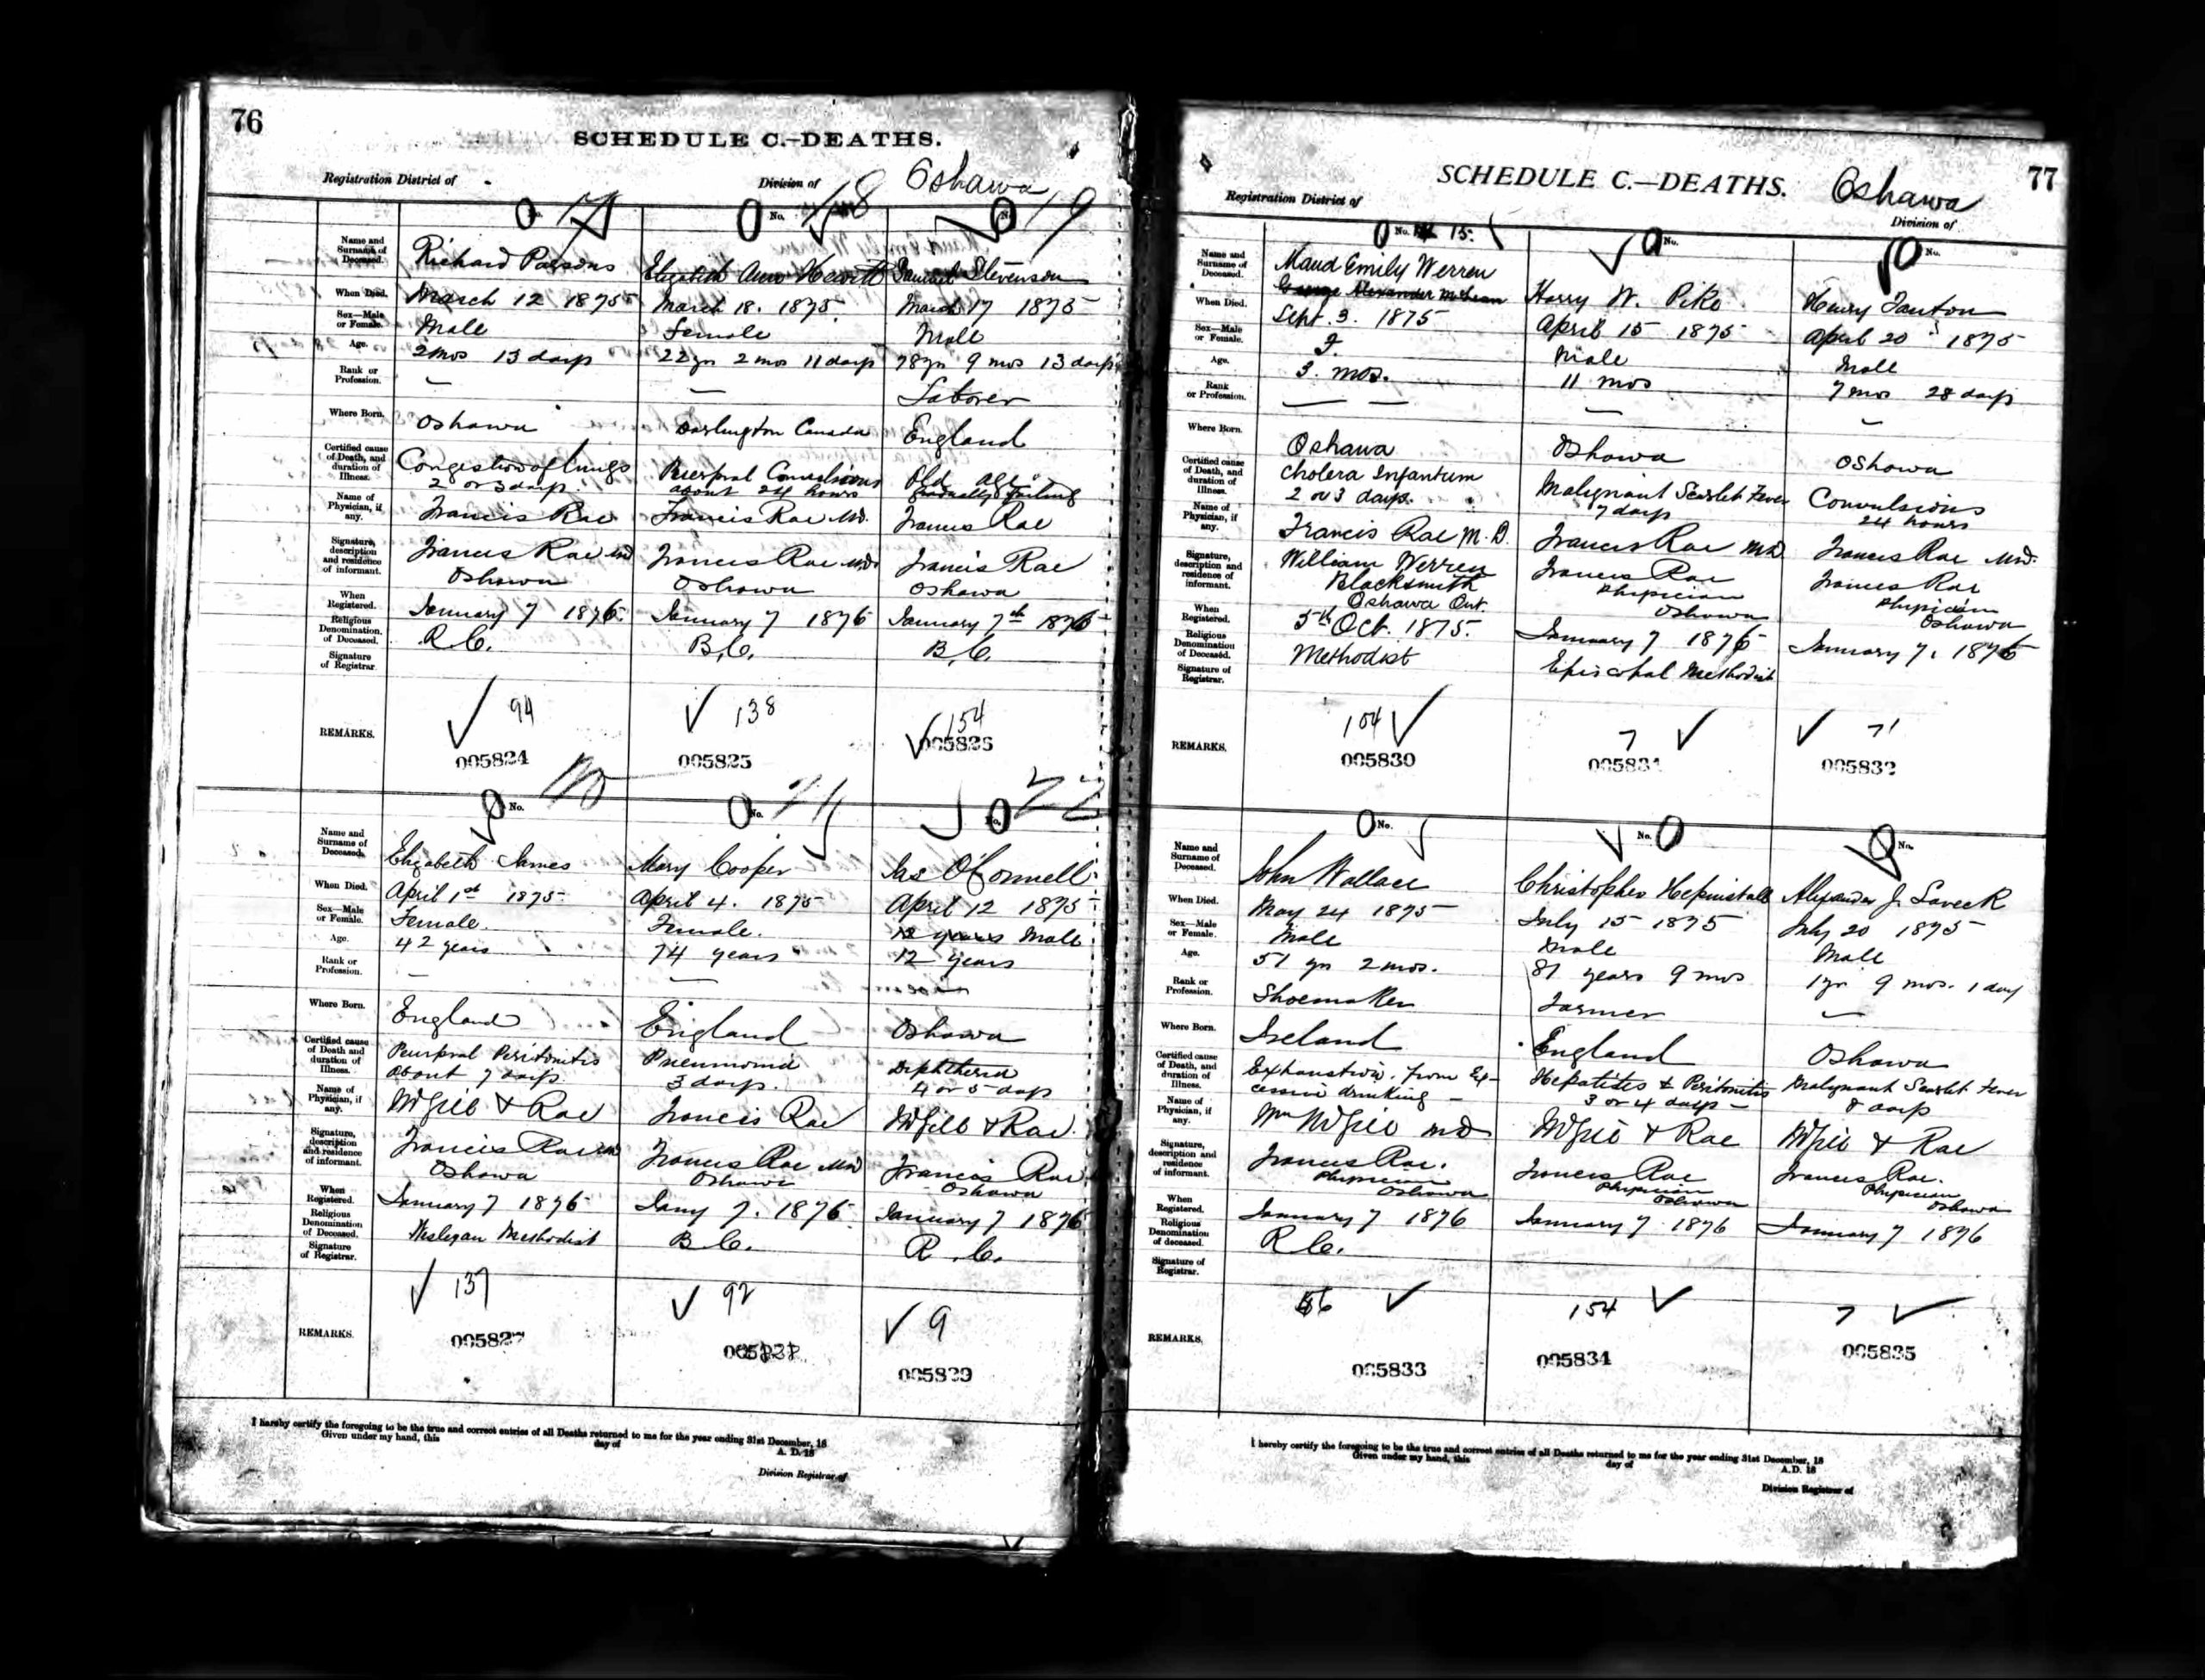 76
SCHEDULE C.—DEATHS.
Registration District of
Division of Oshawa
No. 17
No. 18
No. 19
Name and Surname of Deceased.
Richard Parsons
Elizabeth Ann Hewitt
Samuel Stevenson
When Died.
March 12 1875
March 18. 1875
March 17 1875
Sex—Male or Female.
Male
Female
Male
Age.
2 mos 13 days
22 yrs 2 mos 11 days
78 yrs 9 mos 13 days
Rank or Profession.
—
—
Laborer
Where Born.
Oshawa
Darlington Canada
England
Certified cause of Death, and duration of Illness.
Congestion of lungs
2 or 3 days.
Puerpral Convulsions
about 24 hours
Old age
Gradually failing
Name of Physician, if any.
Francis Rae
Francis Rae MD.
Francis Rae
Signature, description and residence of informant.
Francis Rae MD
Oshawa
Francis Rae MD.
Oshawa
Francis Rae
Oshawa
When Registered.
January 7 1876.
January 7 1876
January 7th 1876
Religious Denomination. of Deceased.
R.C.
B.C.
B.C.
Signature of Registrar.
REMARKS.
94
005824
138
005825
154
005826
No.
No. 21
No. 22
Name and Surname of Deceased.
Elizabeth James
Mary Cooper
Jas O'Connell
When Died.
April 1st 1875
April 4. 1875
April 12 1875
Sex—Male or Female.
Female.
Female.
12 years Male
Age.
42 years
74 years
12 years
Rank or Profession.
—
—
Where Born.
England
England
Oshawa
Certified cause of Death and duration of Illness.
Peurpral Peritonitis
about 7 days.
Pneumonia
3 days.
Diphtheria
4 or 5 days
Name of Physician, if any.
McGill & Rae
Francis Rae
McGill & Rae.
Signature, description and residence of informant.
Francis Rae MD
Oshawa
Francis Rae MD
Oshawa
Francis Rae
Oshawa
When Registered.
January 7 1876
Jany 7. 1876.
January 7 1876
Religious Denomination of Deceased.
Weslyan Methodist
B.C.
R.C.
Signature of Registrar.
REMARKS.
137
005827
92
9
005829
I hereby certify the foregoing to be the true and correct entries of all Deaths returned to me for the year ending 31st December, 18
Given under my hand, this day of A. D. 18
Division Registrar of
77
SCHEDULE C.—DEATHS.
Oshawa
Registration District of
Division of
No. 15.
No.
No.
Name and Surname of Deceased.
Maud Emily Werren
George Alexander McLean
Harry W. Pike
Henry Tanton
When Died.
Sept. 3. 1875
April 15 1875
April 20 1875
Sex—Male or Female.
F.
Male
Male
Age.
3. mos.
11 mos
7 mos 28 days
Rank or Profession.
— —
—
—
Where Born.
Oshawa
Oshawa
Oshawa
Certified cause of Death, and duration of Illness.
Cholera Infantum
2 or 3 days.
Malignant Scarlet Fever
7 days
Convulsions
24 hours
Name of Physician, if any.
Francis Rae M.D.
Francis Rae MD
Francis Rae MD.
Signature, description and residence of informant.
William Werren
Blacksmith
Oshawa Ont.
Francis Rae
Physician
Oshawa
Francis Rae
Physician
Oshawa
When Registered.
5th Oct. 1875.
January 7 1876
January 7, 1876
Religious Denomination of Deceased.
Methodist
Episcopal Methodist
Signature of Registrar.
REMARKS.
104
005830
7
005831
71
005832
No.
No.
No.
Name and Surname of Deceased.
John Wallace
Christopher Hepinstall
Alexander J. Laveck
When Died.
May 24 1875
July 15 1875
July 20 1875
Sex—Male or Female.
Male
Male
Male
Age.
51 yrs 2 mos.
81 years 9 mos
1 yr 9 mos. 1 day
Rank or Profession.
Shoemaker
Farmer
—
Where Born.
Ireland
England
Oshawa
Certified cause of Death, and duration of Illness.
Exhaustion. from Ex-
cessive drinking —
Hepatites & Peritonitis
3 or 4 days —
Malignant Scarlet Fever
8 days
Name of Physician, if any.
Wm McGill MD
McGill & Rae
McGill & Rae
Signature, description and residence of informant.
Francis Rae.
Physician
Oshawa
Francis Rae
Physician
Oshawa
Francis Rae.
Physician
Oshawa
When Registered.
January 7 1876
January 7 1876
January 7 1876
Religious Denomination of deceased.
R.C.
Signature of Registrar.
REMARKS.
005833
154
005834
7
005835
I hereby certify the foregoing to be the true and correct entries of all Deaths returned to me for the year ending 31st December, 18
Given under my hand, this day of A.D. 18
Division Registrar of